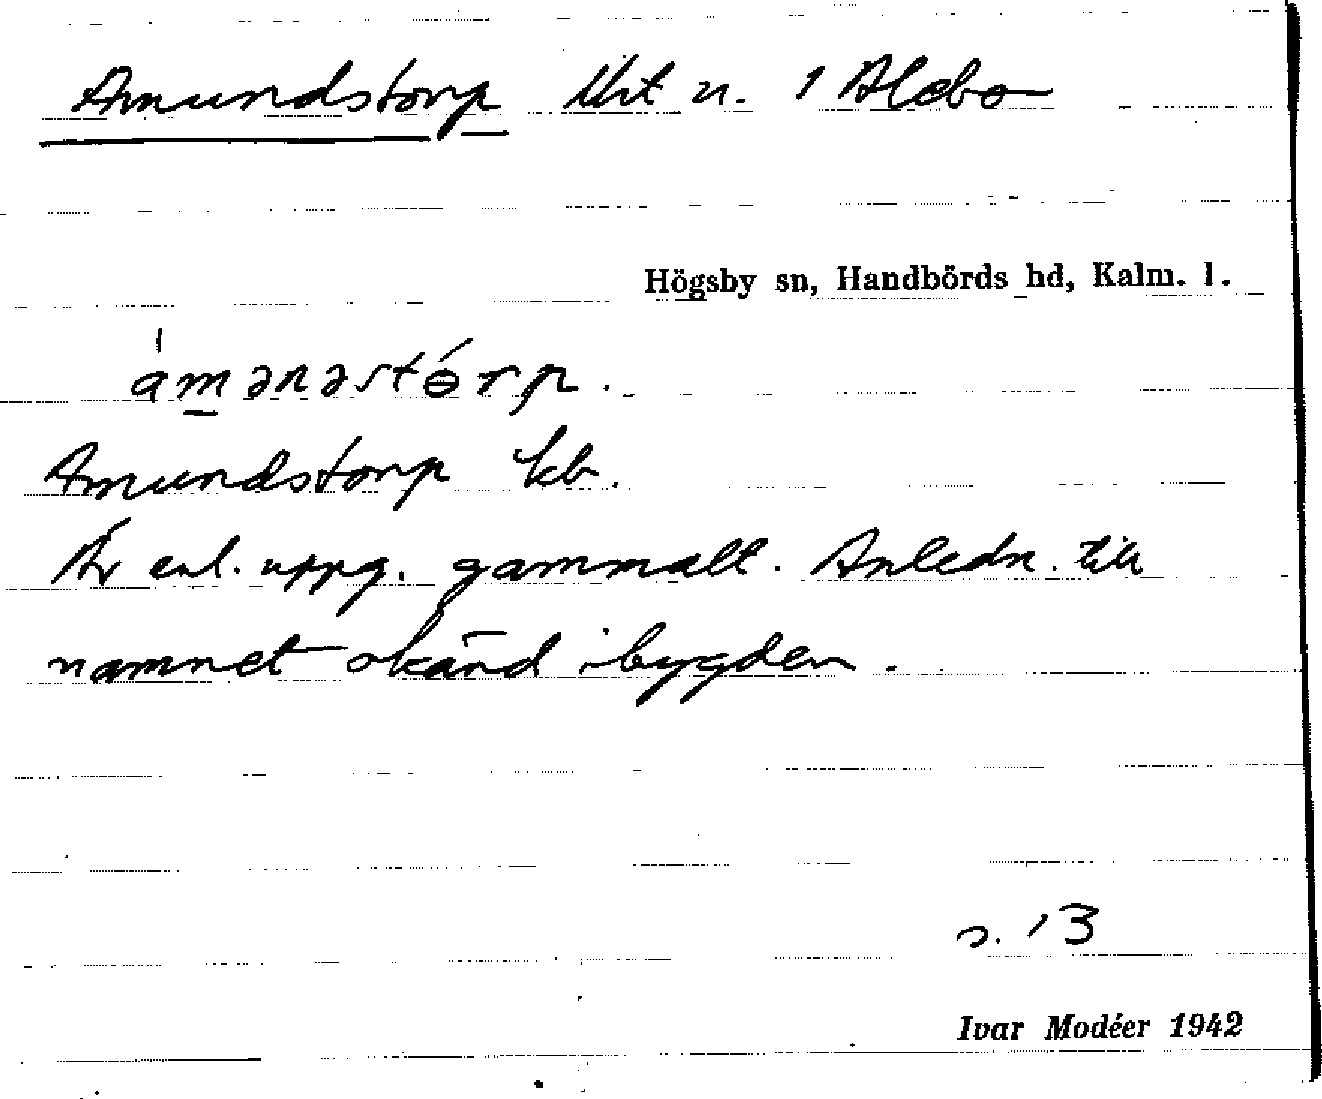 Amundstorp Urt u. 1 Alebo
Högsby sn, Handbörds hd, Kalm. l.
amənəstɵ́rp.
Amundstorp kb.
Är enl. uppg. gammalt. Anledn. till
namnet okänd i bygden.
s. 13
Ivar Modéer 1942